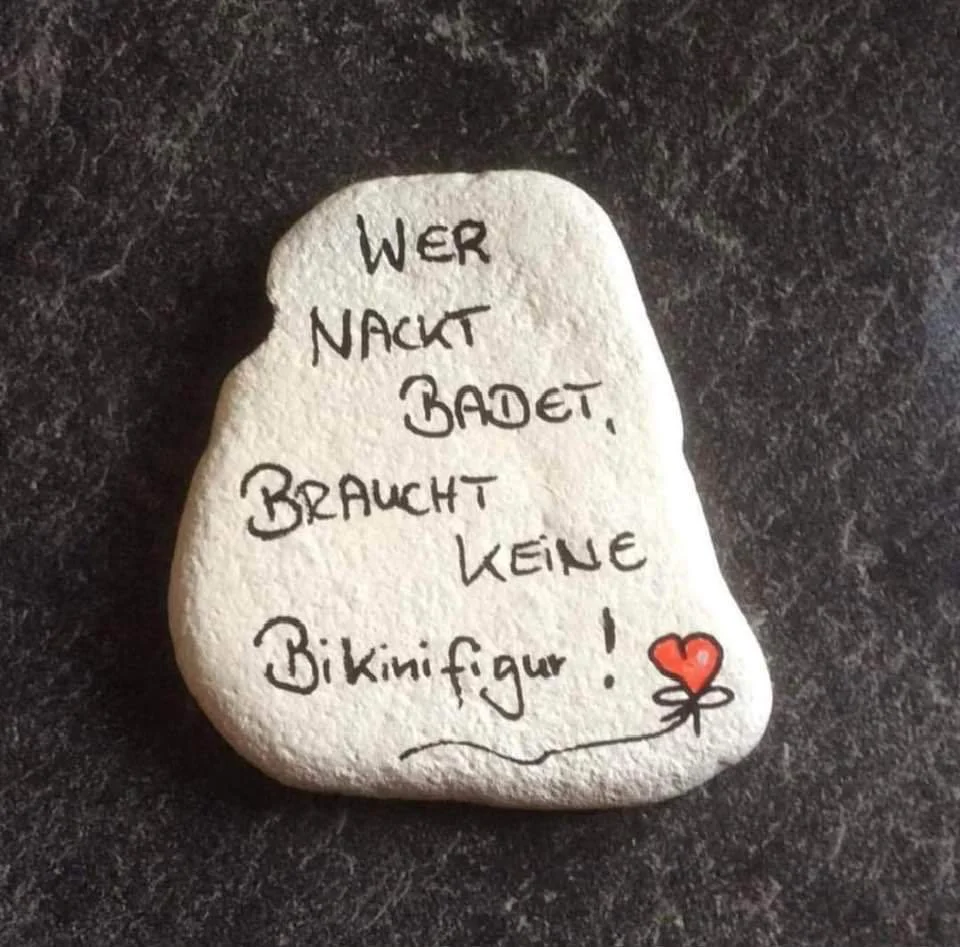 WER
NACKT
BADET,
BRAUCHT
KEiNE
Bikinifigur!